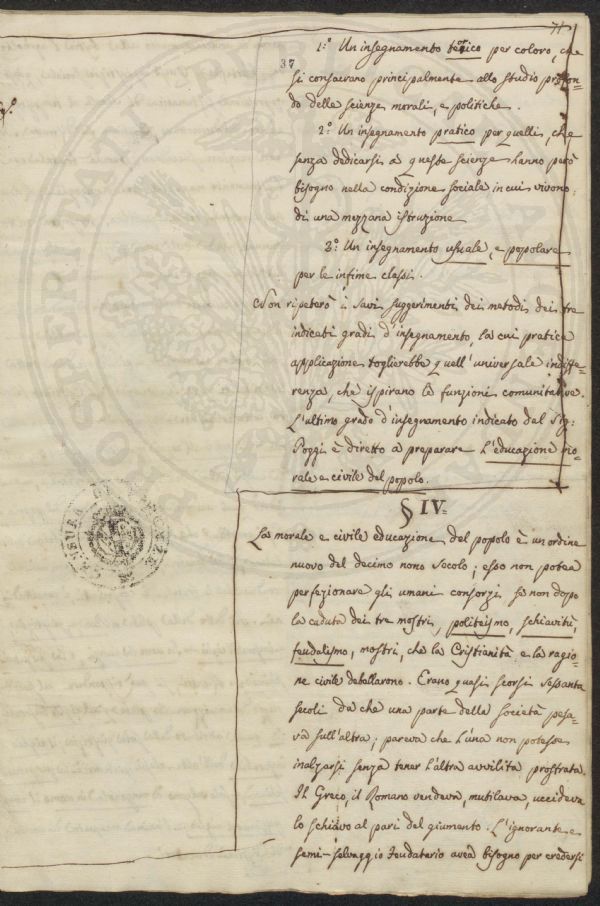 71
1.º Un insegnamento teorico per coloro, che
37
si consacrano principalmente allo studio profon=
do delle scienze morali, e politiche.
2.º Un insegnamento pratico per quelli, che
senza dedicarsi a queste scienze hanno però
bisogno nella condizione sociale in cui vivono
di una mezzana istruzione
3.º Un insegnamento usuale, e popolare
per le infime classi.
Non ripeterò i savi suggerimenti dei metodi dei tre
indicati gradi d'insegnamento, la cui pratica
applicazione toglierebbe quell'universale indiffe=
renza, che ispirano le funzioni comunitative.
L'ultimo grado d'insegnamento indicato dal Sig:
Poggi è diretto a preparare l'educazione mo=
rale e civile del popolo.
§ IV.
La morale e civile educazione del popolo è un ordine
nuovo del decimo nono secolo; esso non potea
perfezionare gli umani consorzi se non dopo
la caduta dei tre mostri, politeismo, schiavitù,
feudalismo, mostri, che la Cristianità e la ragio=
ne civile debellarono. Erano quasi scorsi sessanta
secoli da che una parte della società pesa=
va sull'altra; pareva che l'una non potesse
inalzarsi senza tener l'altra avvilita prostrata.
Il Greco, il Romano vendeva, mutilava, uccideva
lo schiavo al pari del giumento. L'ignorante e
semi-selvaggio feudatario avea bisogno per credersi
CENSURA DI FIRENZE